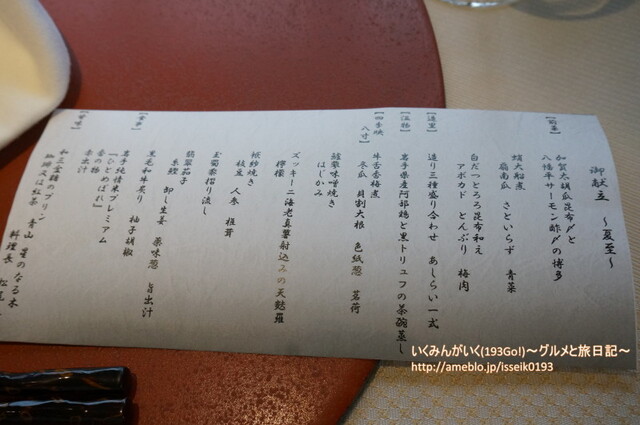 御献立　～夏至～
【前菜】
加賀太胡瓜昆布〆と
八幡平サーモン酢〆の博多
蛸大船煮
南南瓜　さといらず　青菜
白だつとろろ昆布和え
アボカド　とんぶり　梅肉
【造里】
造り三種盛り合わせ　あしらい一式
【温物】
岩手県産阿部鶏と黒トリュフの茶碗蒸し
【四季映 八寸】
牛舌香梅煮
冬瓜　貝割大根　色紙葱　茗荷
鱧東味噌焼き
はじかみ
ズッキーニ海老真薯射込みの天麩羅
檸檬
袱紗焼き
枝豆　人参　椎茸
玉蜀黍摺り流し
翡翠茄子
糸鰹　卸し生姜　薬味葱　旨出汁
黒毛和牛炙り　柚子胡椒
【食事】
岩手純情米プレミアム
「ひとめぼれ」
香の物
赤出汁
【甘味】
和三盆糖のプリン
珈琲又は紅茶
青山　星のなる木
料理長　松尾
いくみんがいく(193Go!)～グルメと旅日記～
http://ameblo.jp/isseik0193